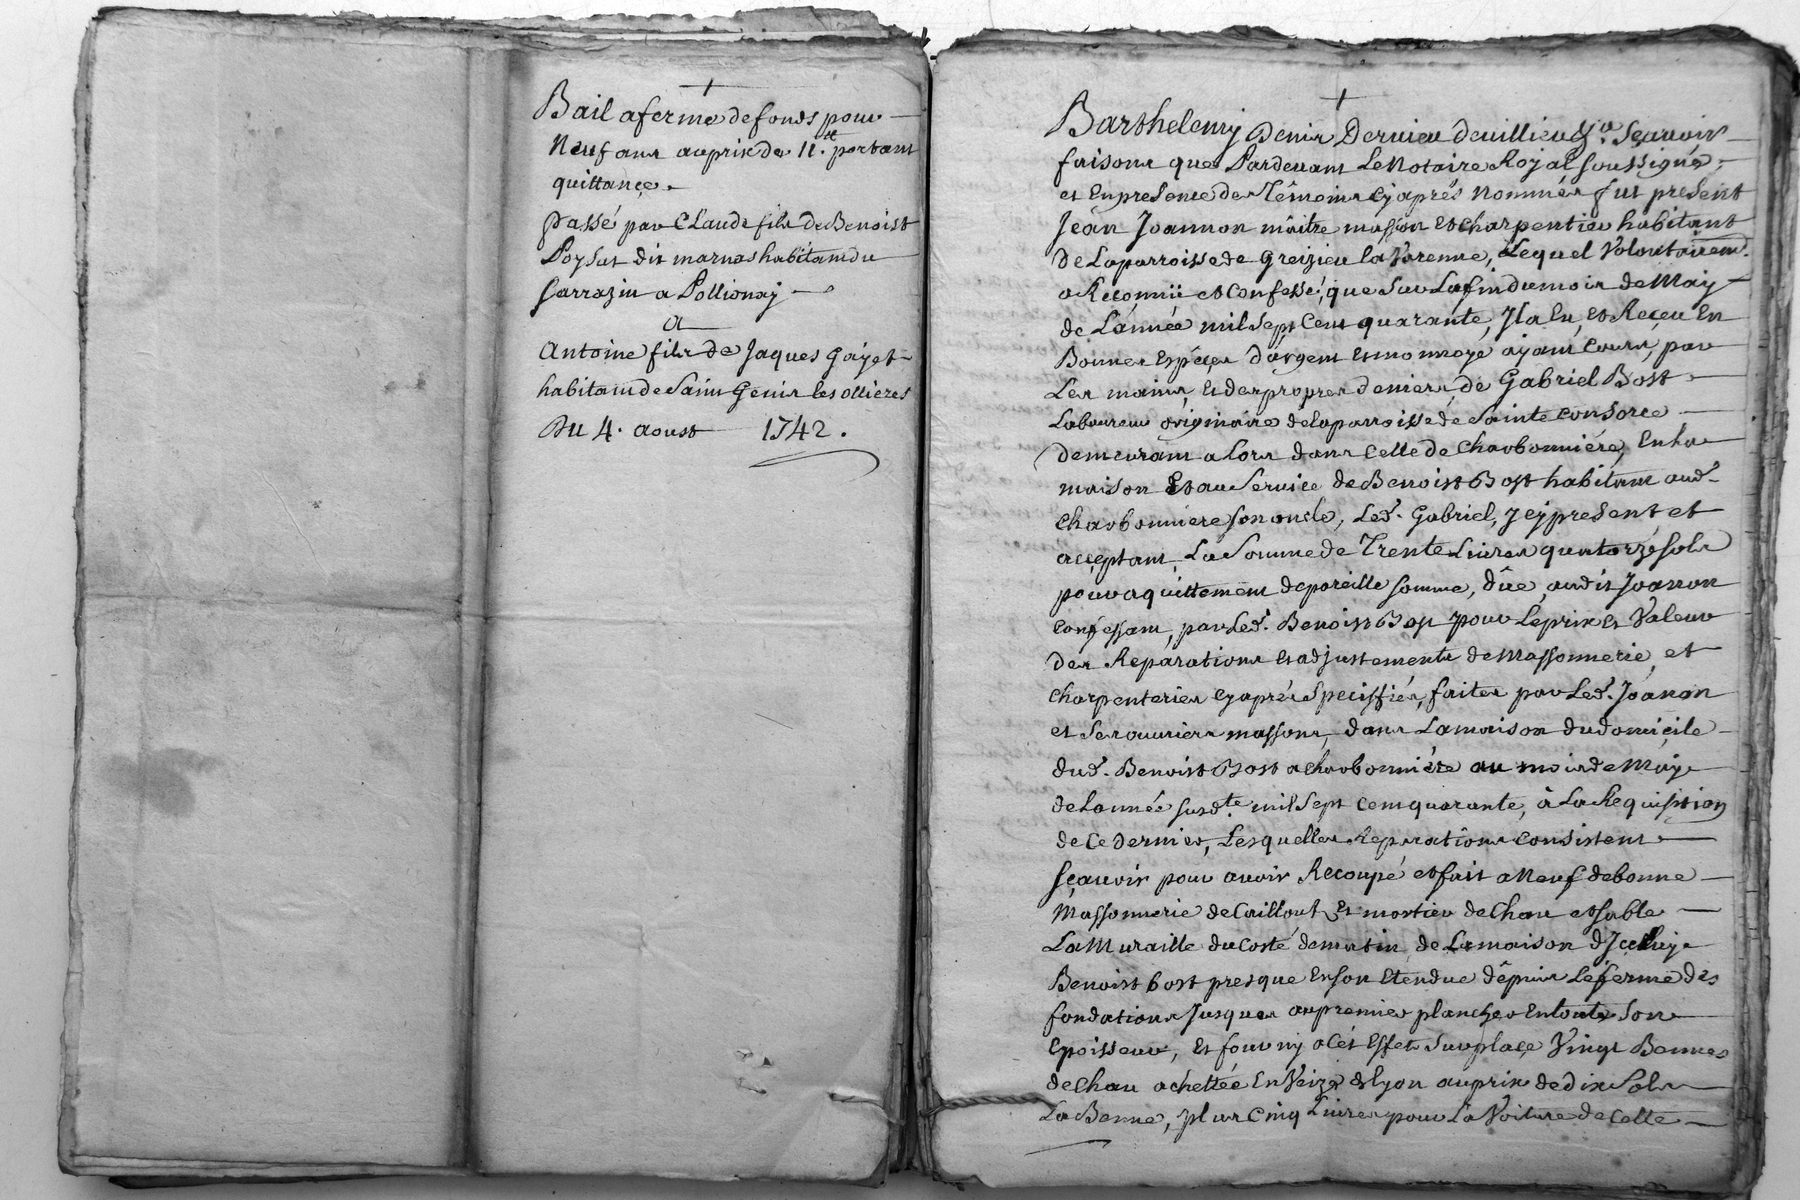 Bail a ferme de fonds pour
Neuf ans au prix de 11.tt portant
quittance.
Passé par Claude fils de Benoist
Poysat dit marnas habitant du
Sarrazin a Pollionay
A
Antoine fils de Jaques Gayet
habitant de Saint Genis les ollieres
Du 4. aoust 1742.
Barthelemy Denis Dervieu de villieu &.a Sçavoir
faisons que Pardevant Le Notaire Royal soussigné,
et En presence des Têmoins cy aprés nommés fut present
Jean Joannon mâitre masson et charpentier habitant
de La parroisse de Greizieu la Varenne, Lequel Volontairem.t
a Reconnü et Confessé, que Sur La fin du mois de May
de L'année mil Sept Cent quarante, Jl a Eu, et Reçeu En
Bonnes Espéces d'argent et monnoye ayant cours, par
Les mains, et des propres deniers, de Gabriel Bost
Laboureur originaire de La parroisse de Sainte Consorce
demeurant a Lors dans Celle de Charbonniére, En La
maison Et au Service de Benoist Bost habitant aud.
Charbonniere son oncle, Led. Gabriel, Jcy present et
acceptant, La Somme de Trente Livres quatorze sols
pour aquittement de pareille somme, dûe, audit Joannon
Confessant, par Led. Benoist Bost pour Le prix et Valeur
des Reparations et adjustements de Massonnerie, et
Charpenteries cy aprés speciffiés, faites par Led. Joanon
et Ses ouvriers massons, dans La maison du domicile
dud. Benoist Bost a Charbonniére au mois de May
de L'année susd.te mil Sept Cent quarante, à La Requisition
de Ce dernier, Lesquelles Reparations consistent
Sçavoir pour avoir Recoupé et fait a Neuf de bonne
Massonnerie de Caillout et mortier de Chau et sable
La Muraille du costé de matin de La maison d'Jcelluy
Benoist Bost presque En son Etendue dêpuis Le ferme des
fondations Jusques au premier plancher En toute Son
Epoisseur, Et fourny a Cét Effet Sur place Vingt Bennes
de Chau achettée En Veize de lyon au prix de dix Sols
La Benne, plus Cinq Livres pour La Voiture de Celle